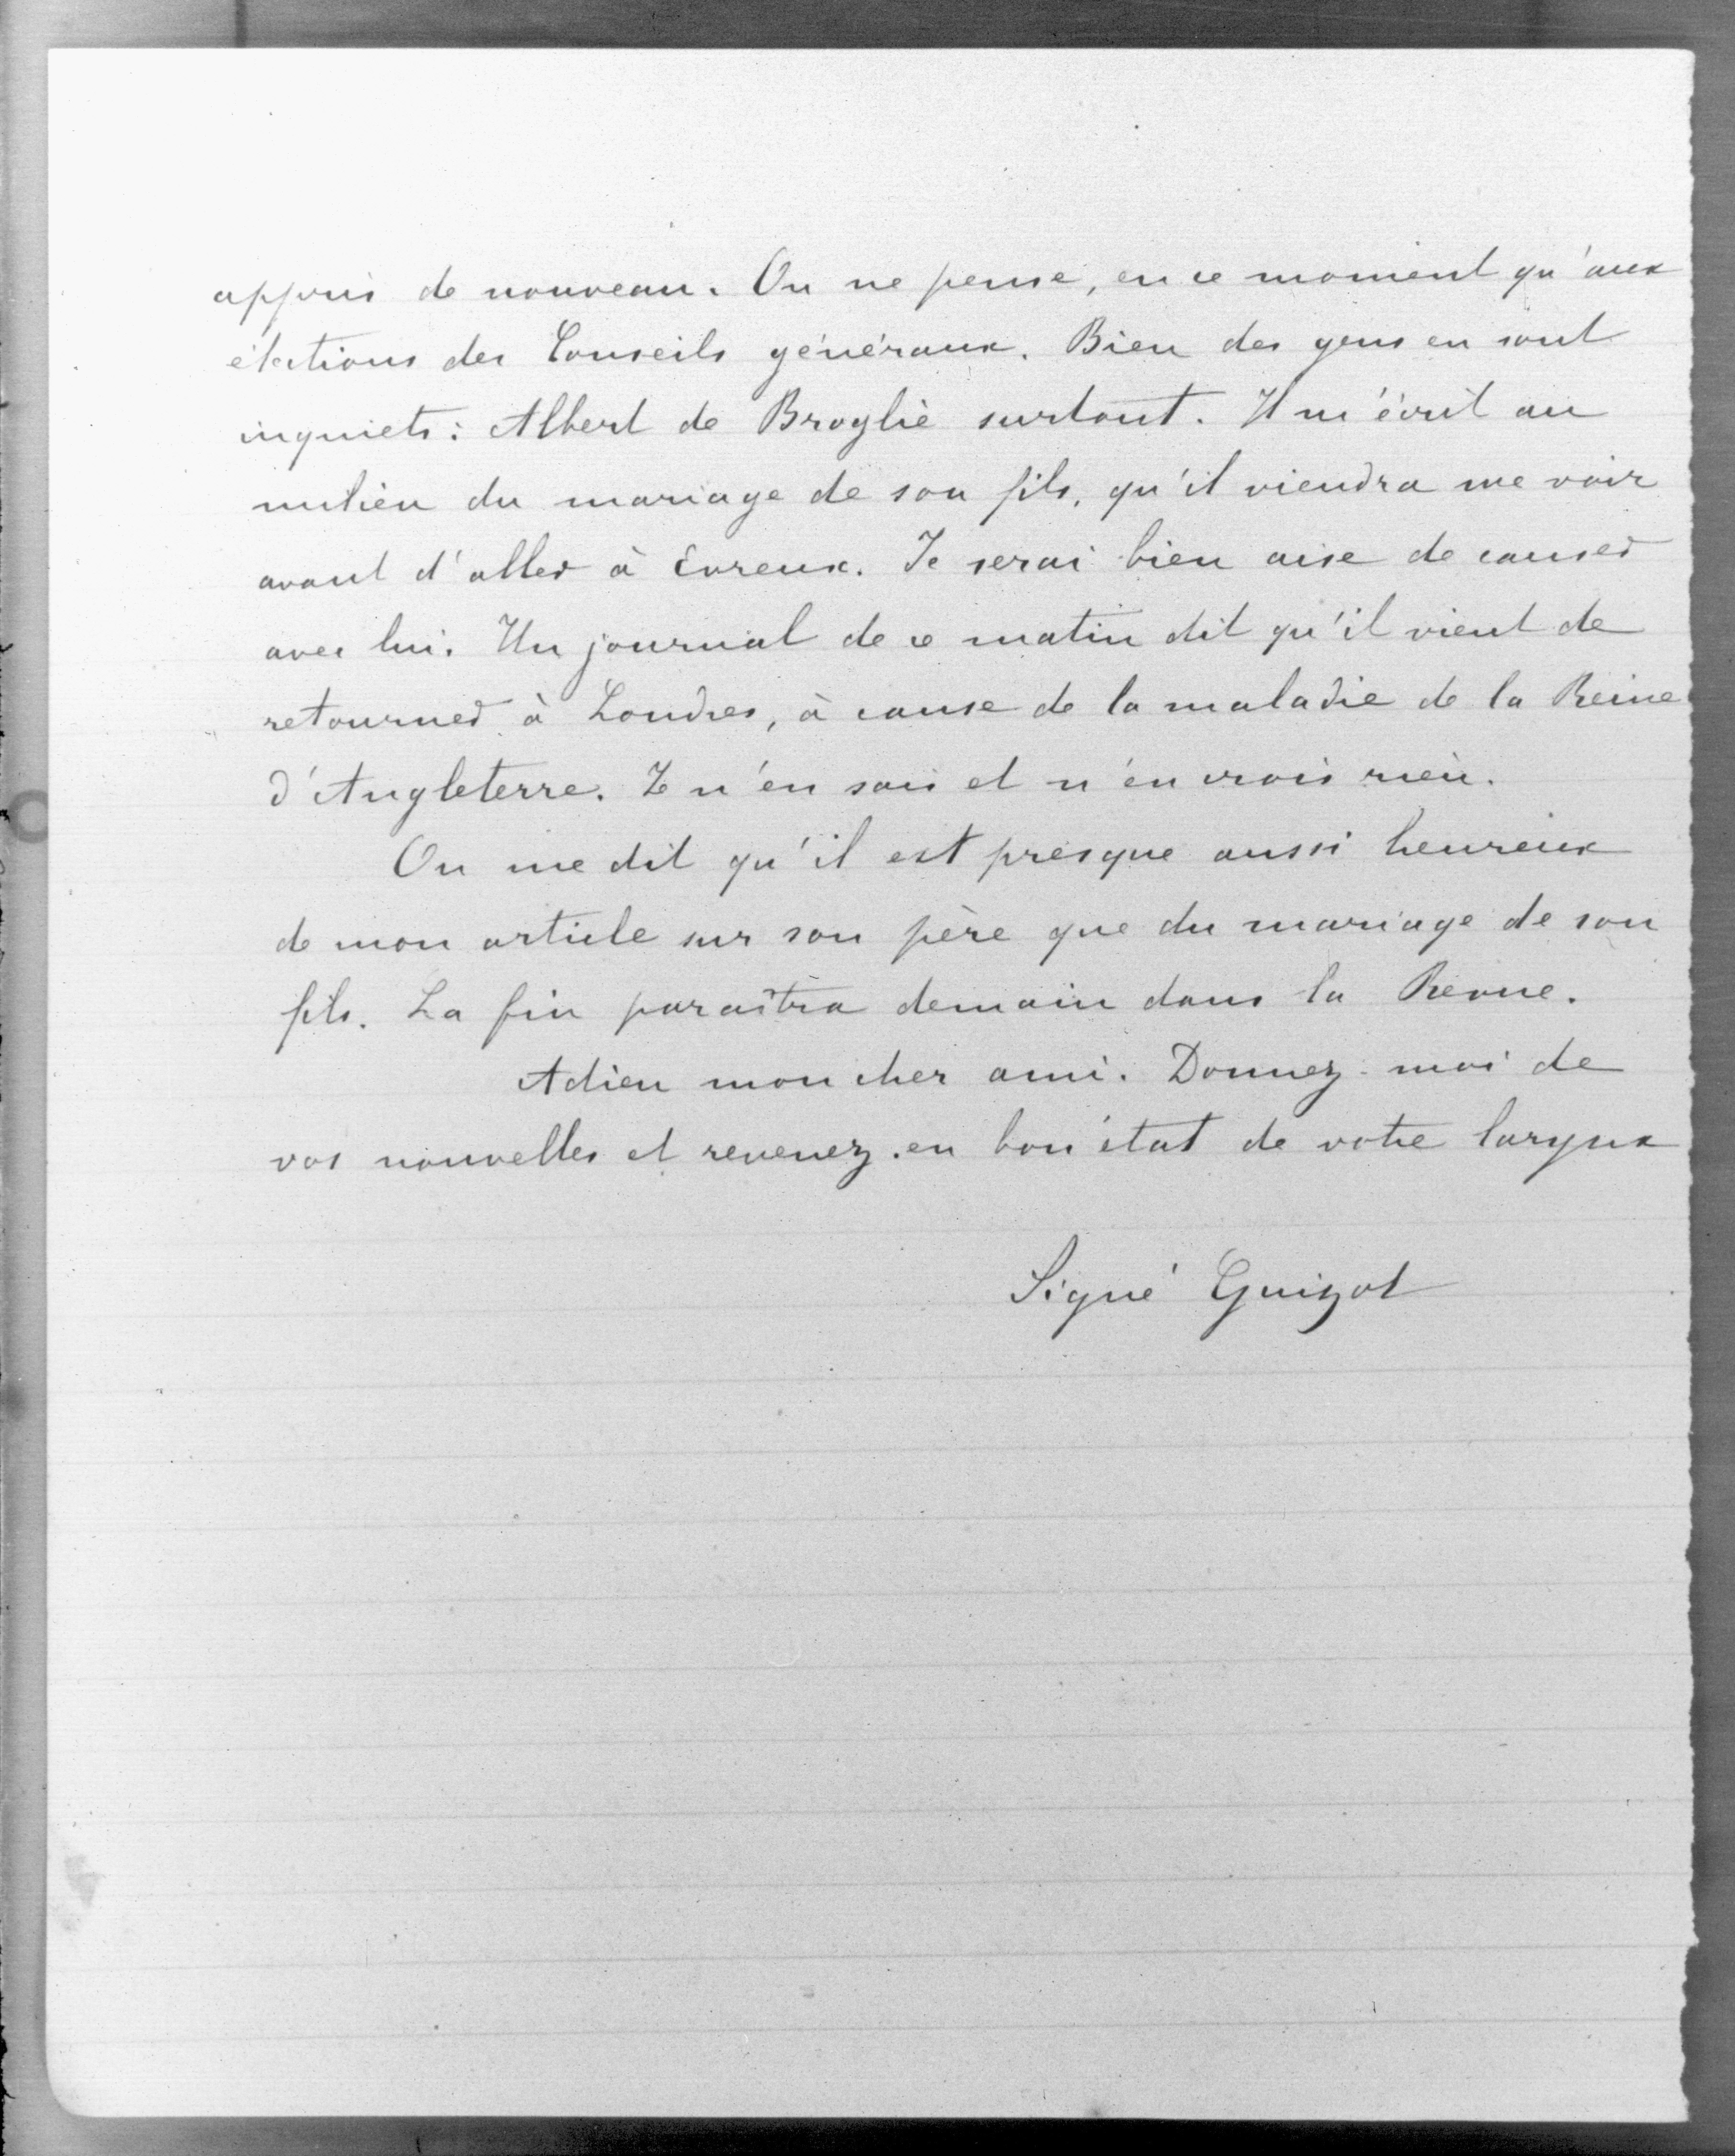 appris de nouveau. On ne pense, en ce moment qu'aux
élections des Conseils généraux. Bien des gens en sont
inquiets : Albert de Broglie surtout. Il m'écrit au
milieu du mariage de son fils, qu'il viendra me voir
avant d'aller à Evreux. Je serai bien aise de causer
avec lui. Un journal de ce matin dit qu'il vient de
retourner à Londres, à cause de la maladie de la Reine
d'Angleterre. Je n'en sais et n'en crois rien.
On me dit qu'il est presque aussi heureux
de mon article sur son père que du mariage de son
fils. La fin paraîtra demain dans la Revue.
Adieu mon cher ami. Donnez-moi de
vos nouvelles et revenez en bon état de votre larynx
Signé Guizot